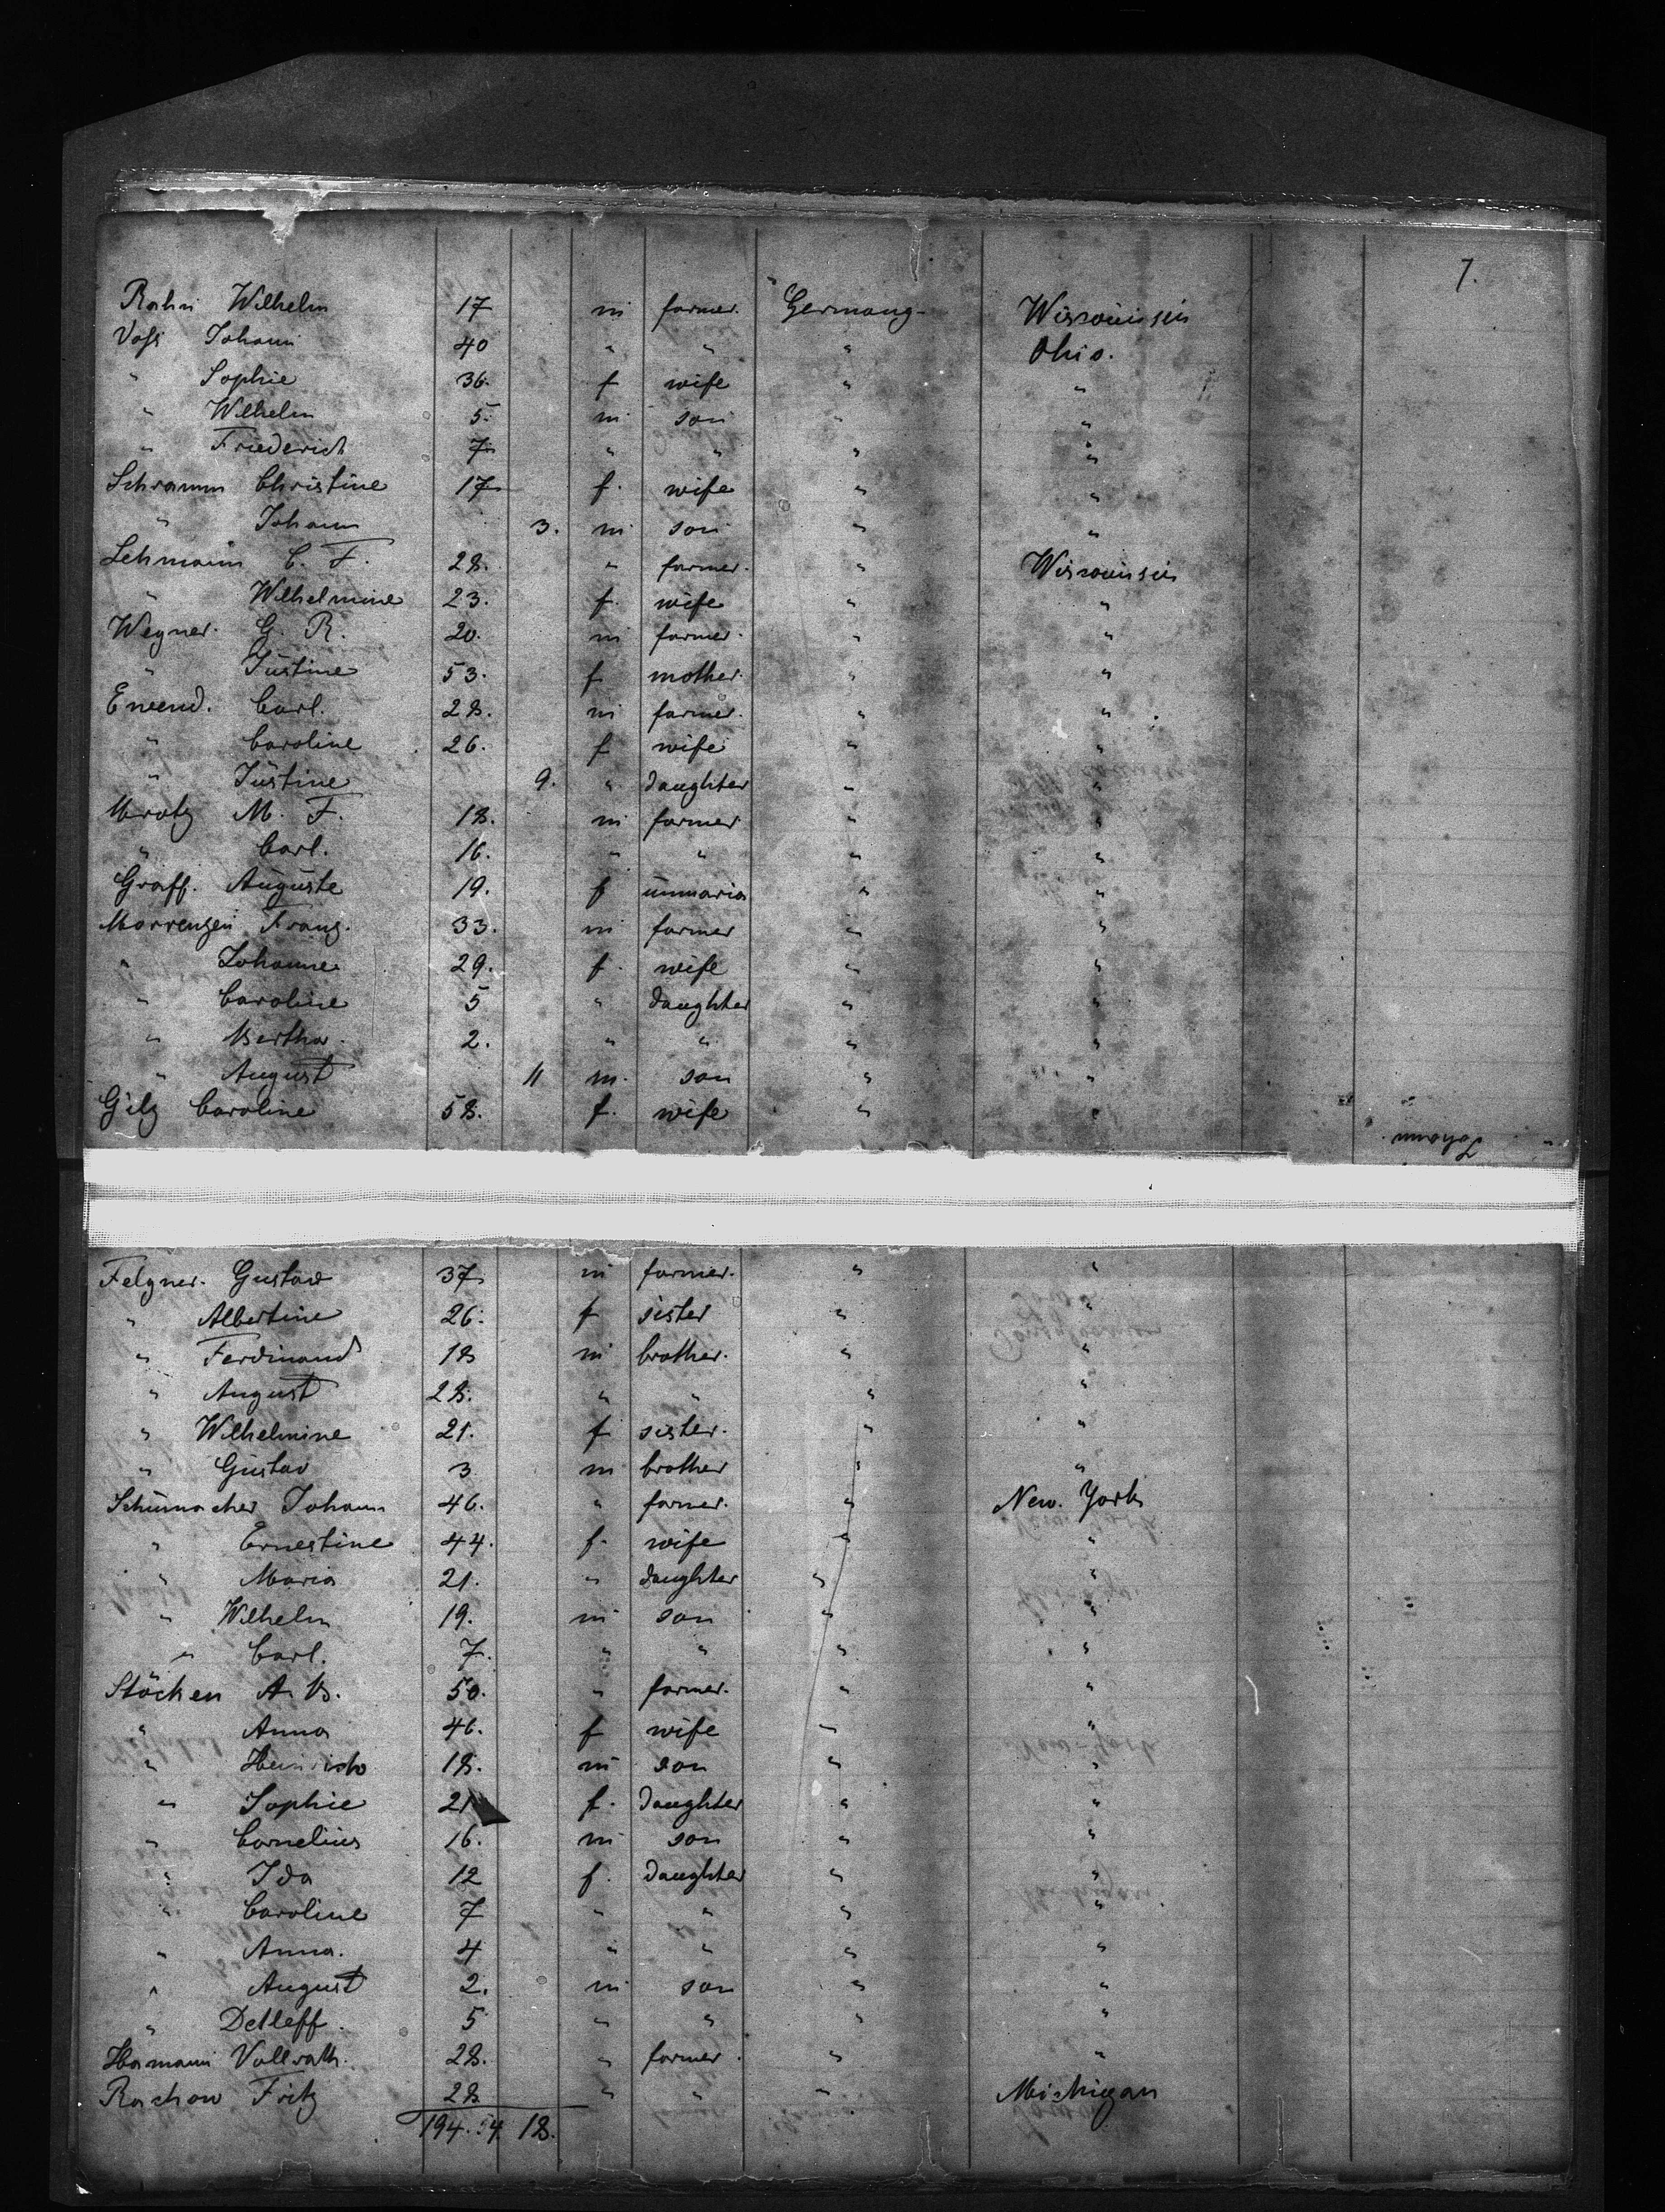 7.
Rahn Wilhelm 17 m farmer. Germany Wisconinsin
Voss Johann 40 " " " Ohio.
" Sophie 36. f wife " "
" Wilhelm 5. m son " "
" Friederich 7 " " " "
Schramm Christine 17 f. wife " "
" Johann 3. m son " "
Lehmann C. F. 28. " farmer. " Wisconinsin
" Wilhelmine 23. f. wife " "
Wegner. G. R. 20. m farmer. " "
" Justine 53. f mother. " "
Enend. Carl. 28. m farmer. " "
" Caroline 26. f wife " "
" Justine 9. " daughter " "
Mratz M. F. 18. m farmer " "
" Carl. 16. " " " "
Graff. Auguste 19. f unmaria " "
Morrenzen Franz. 33. m farmer " "
" Johanne 29. f. wife " "
" Caroline 5 " daughter " "
" Bertha. 2. " " " "
" August 11 m. son " "
Gilz Caroline 58. f. wife " "
Johann "
Felgner. Gustav 37 m farmer. " "
" Albertine 26. f sister " "
" Ferdinand 18 m brother. " "
" August 28. " " " "
" Wilhelmine 21. f sister. " "
" Gustav 3 m brother " "
Schumacher Johann 46. " farmer. " New. York
" Ernestine 44. f. wife " "
" Maria 21. " daughter " "
" Wilhelm 19. m son " "
" Carl. 7. " " " "
Stöcken A. B. 50. " farmer. " "
" Anna 46. f wife " "
" Heinrich 18. m son " "
" Sophie 21 f. daughter " "
" Cornelius 16. m son " "
" Ida 12 f. daughter " "
" Caroline 7 " " " "
" Anna. 4 " " " "
" August 2. m son " "
" Detleff. 5 " " " "
Hamann Vollrath. 28. " farmer. " "
Rachow Fritz 28 " " " Michigan
194. 54. 18.